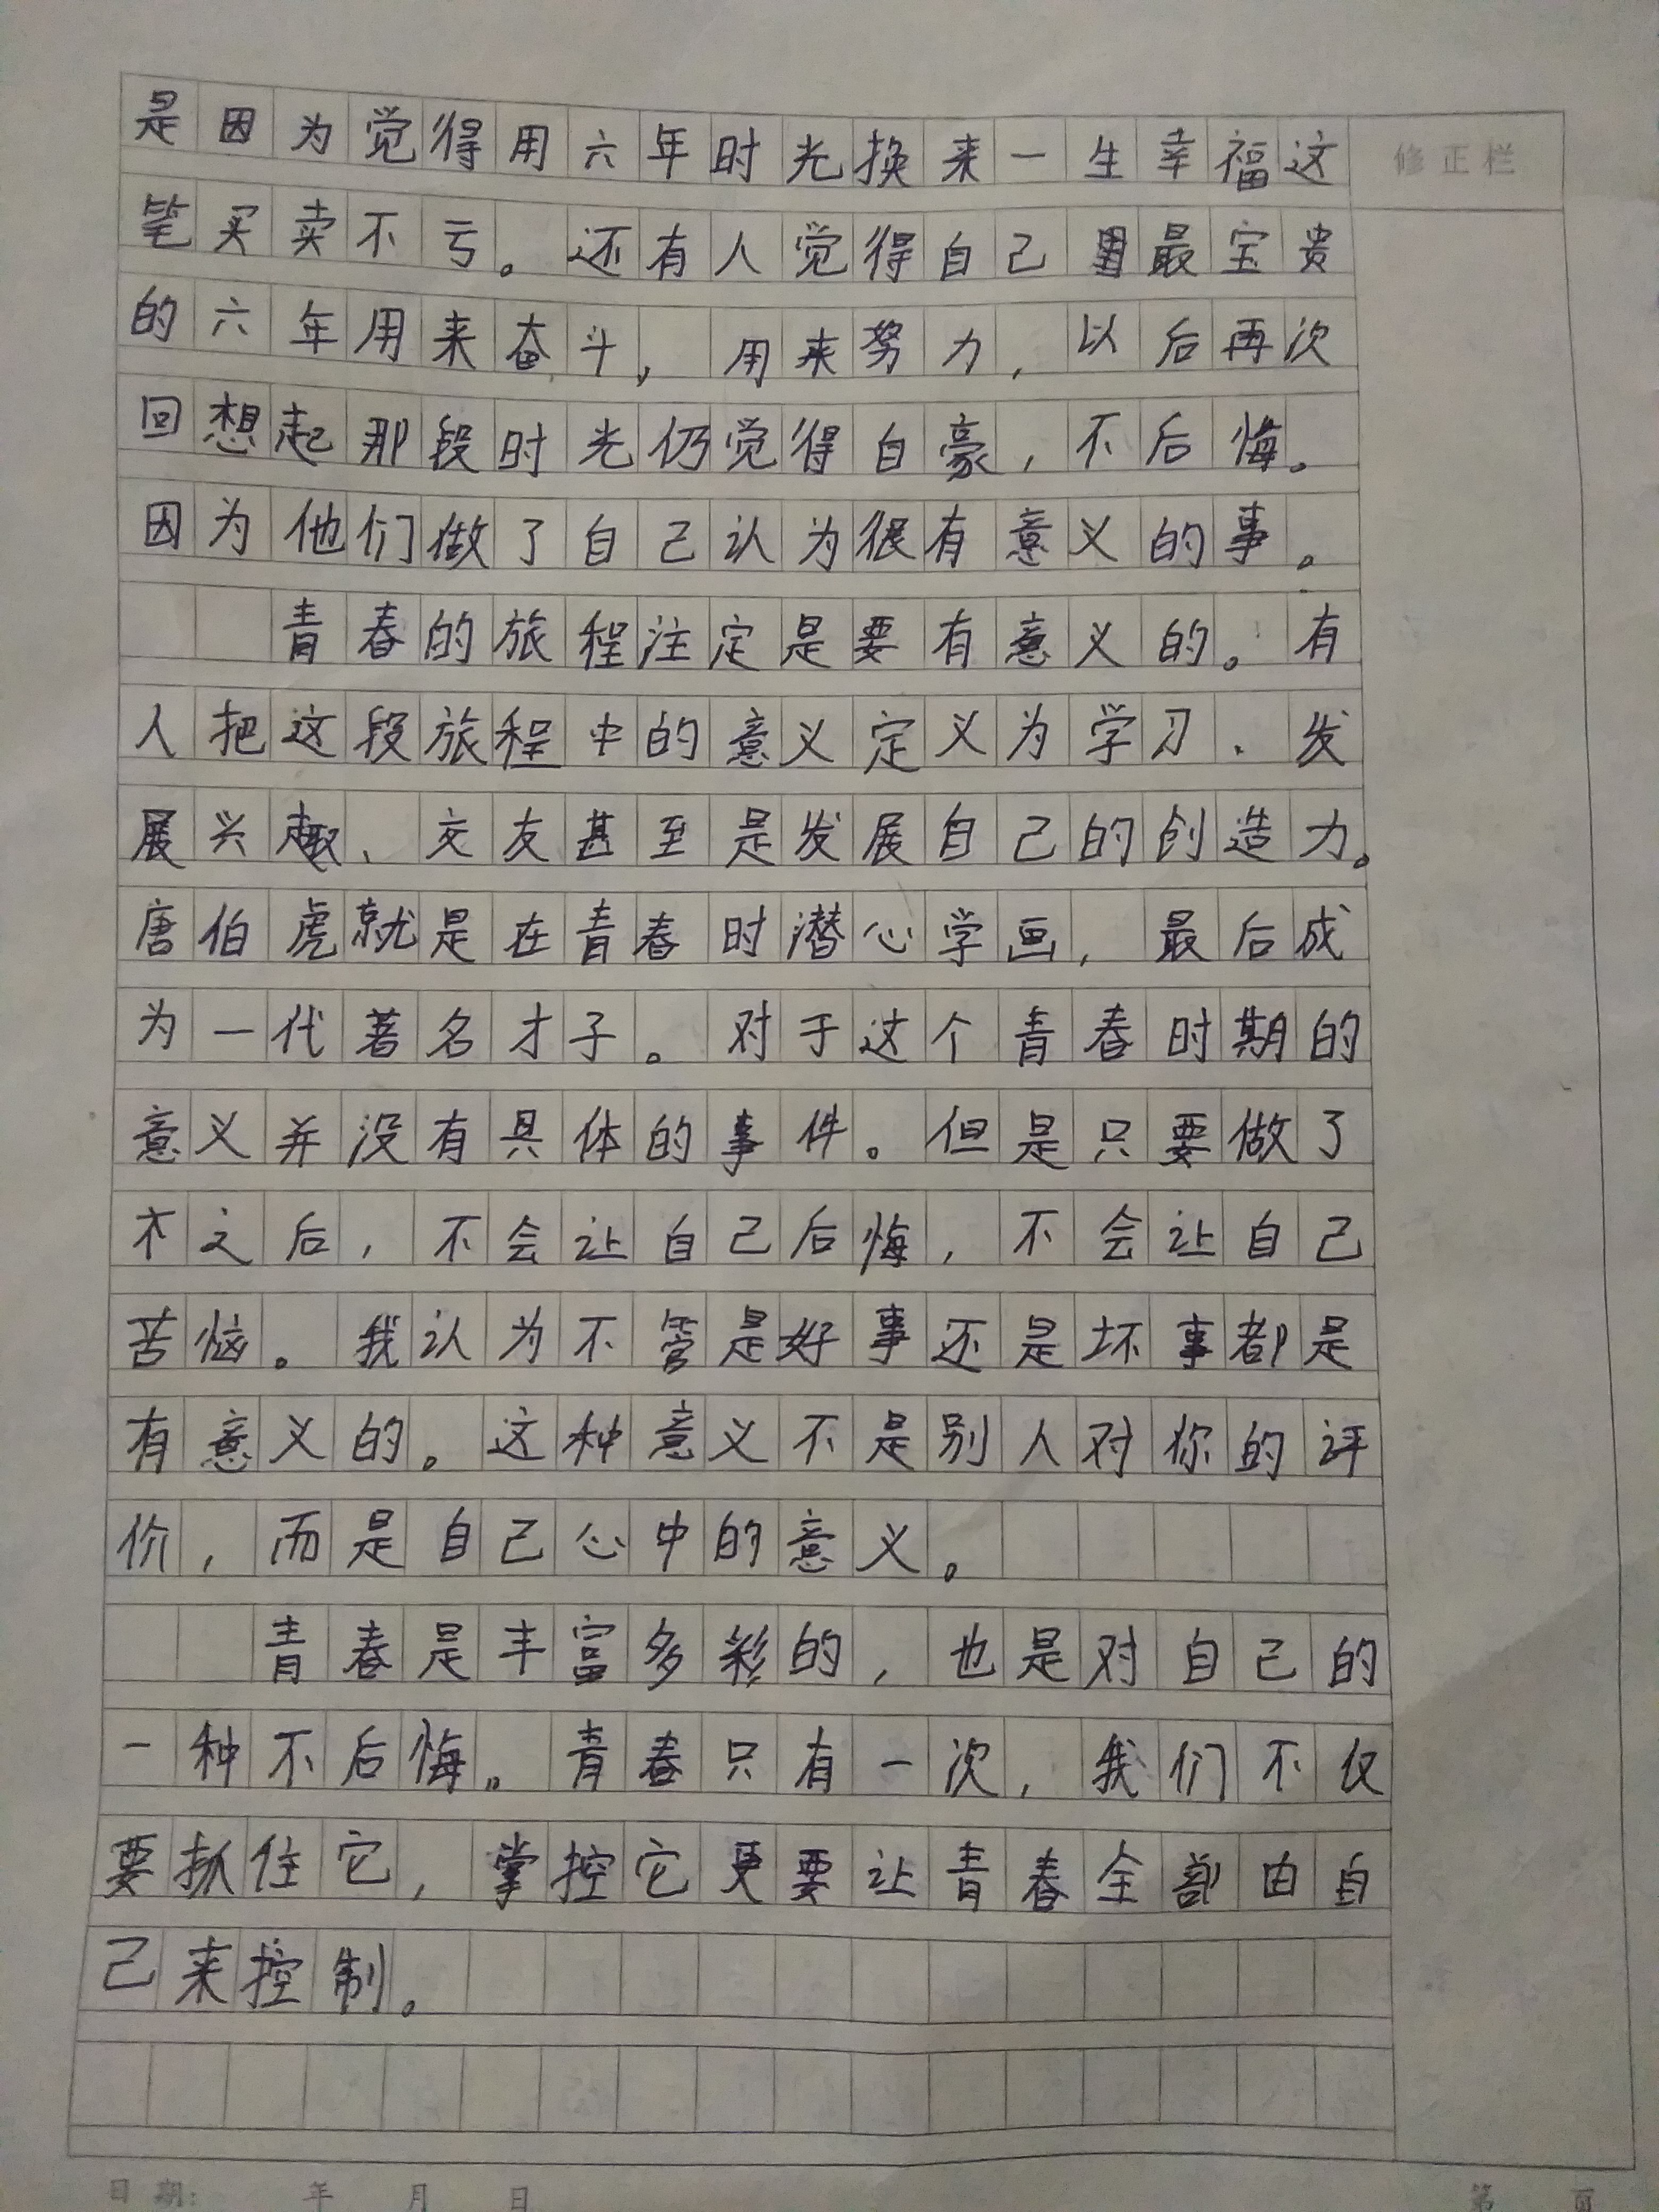 是因为觉得用六年时光换来一生幸福这
修正栏
笔买卖不亏。还有人觉得自己最宝贵
的六年用来奋斗，用来努力，以后再次
回想起那段时光仍觉得自豪，不后悔。
因为他们做了自己认为很有意义的事。
青春的旅程注定是要有意义的。有
人把这段旅程中的意义定义为学习、发
展兴趣、交友甚至是发展自己的创造力。
唐伯虎就是在青春时潜心学画，最后成
为一代著名才子。对于这个青春时期的
意义并没有具体的事件。但是只要做了
之后，不会让自己后悔，不会让自己
苦恼。我认为不管是好事还是坏事都是
有意义的。这种意义不是别人对你的评
价，而是自己心中的意义。
青春是丰富多彩的，也是对自己的
一种不后悔。青春只有一次，我们不仅
要抓住它，掌控它更要让青春全部由自
己来控制。
日期: 年 月 日
第 页